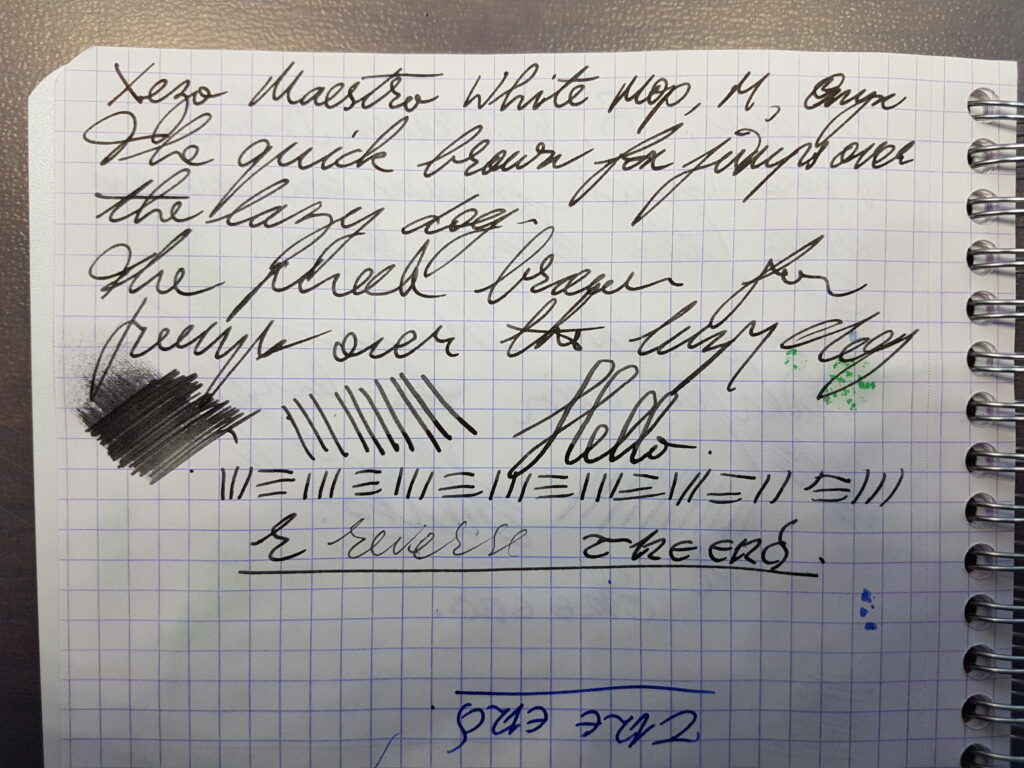 Xezo Maestro White MOP, M, Onyx
The quick brown fox jumps over
the lazy dog.
The quick brown fox
jumps over the lazy dog
Hello.
R reverse The end.
The end.